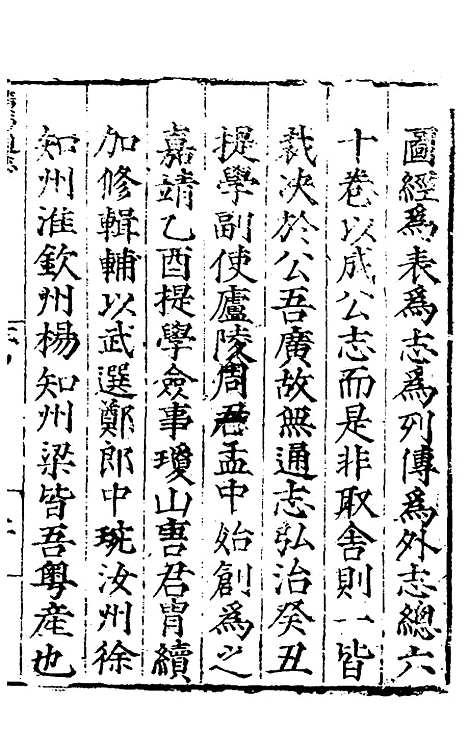 圖經爲表爲志爲列傳爲外志總六
十卷以成公志而是非取舍則一皆
裁决於公吾廣故無通志弘治癸丑
提學副使廬陵周君孟中始創爲之
嘉靖乙酉提學僉事瓊山唐君胄續
加修輯輔以武選鄭郎中琬汝州徐
知州淮欽州楊知州梁皆吾粤產也